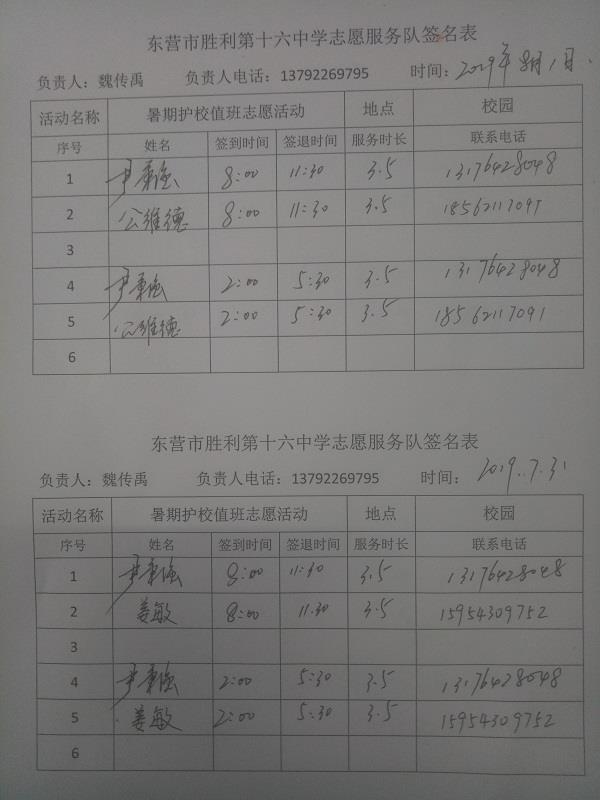 东营市胜利第十六中学志愿服务队签名表
负责人：魏传禹 负责人电话：13792269795 时间：2019年8月1日.
活动名称 暑期护校值班志愿活动 地点 校园
序号 姓名 签到时间 签退时间 服务时长 联系电话
1 尹秉强 8:00 11:30 3.5 13176428048
2 公维德 8:00 11:30 3.5 18562117091
3
4 尹秉强 2:00 5:30 3.5 13176428048
5 公维德 2:00 5:30 3.5 18562117091
6
东营市胜利第十六中学志愿服务队签名表
负责人：魏传禹 负责人电话：13792269795 时间： 2019.7.31
活动名称 暑期护校值班志愿活动 地点 校园
序号 姓名 签到时间 签退时间 服务时长 联系电话
1 尹秉强 8:00 11:30 3.5 13176428048
2 姜敏 8:00 11:30 3.5 15954309752
3
4 尹秉强 2:00 5:30 3.5 13176428048
5 姜敏 2:00 5:30 3.5 15954309752
6